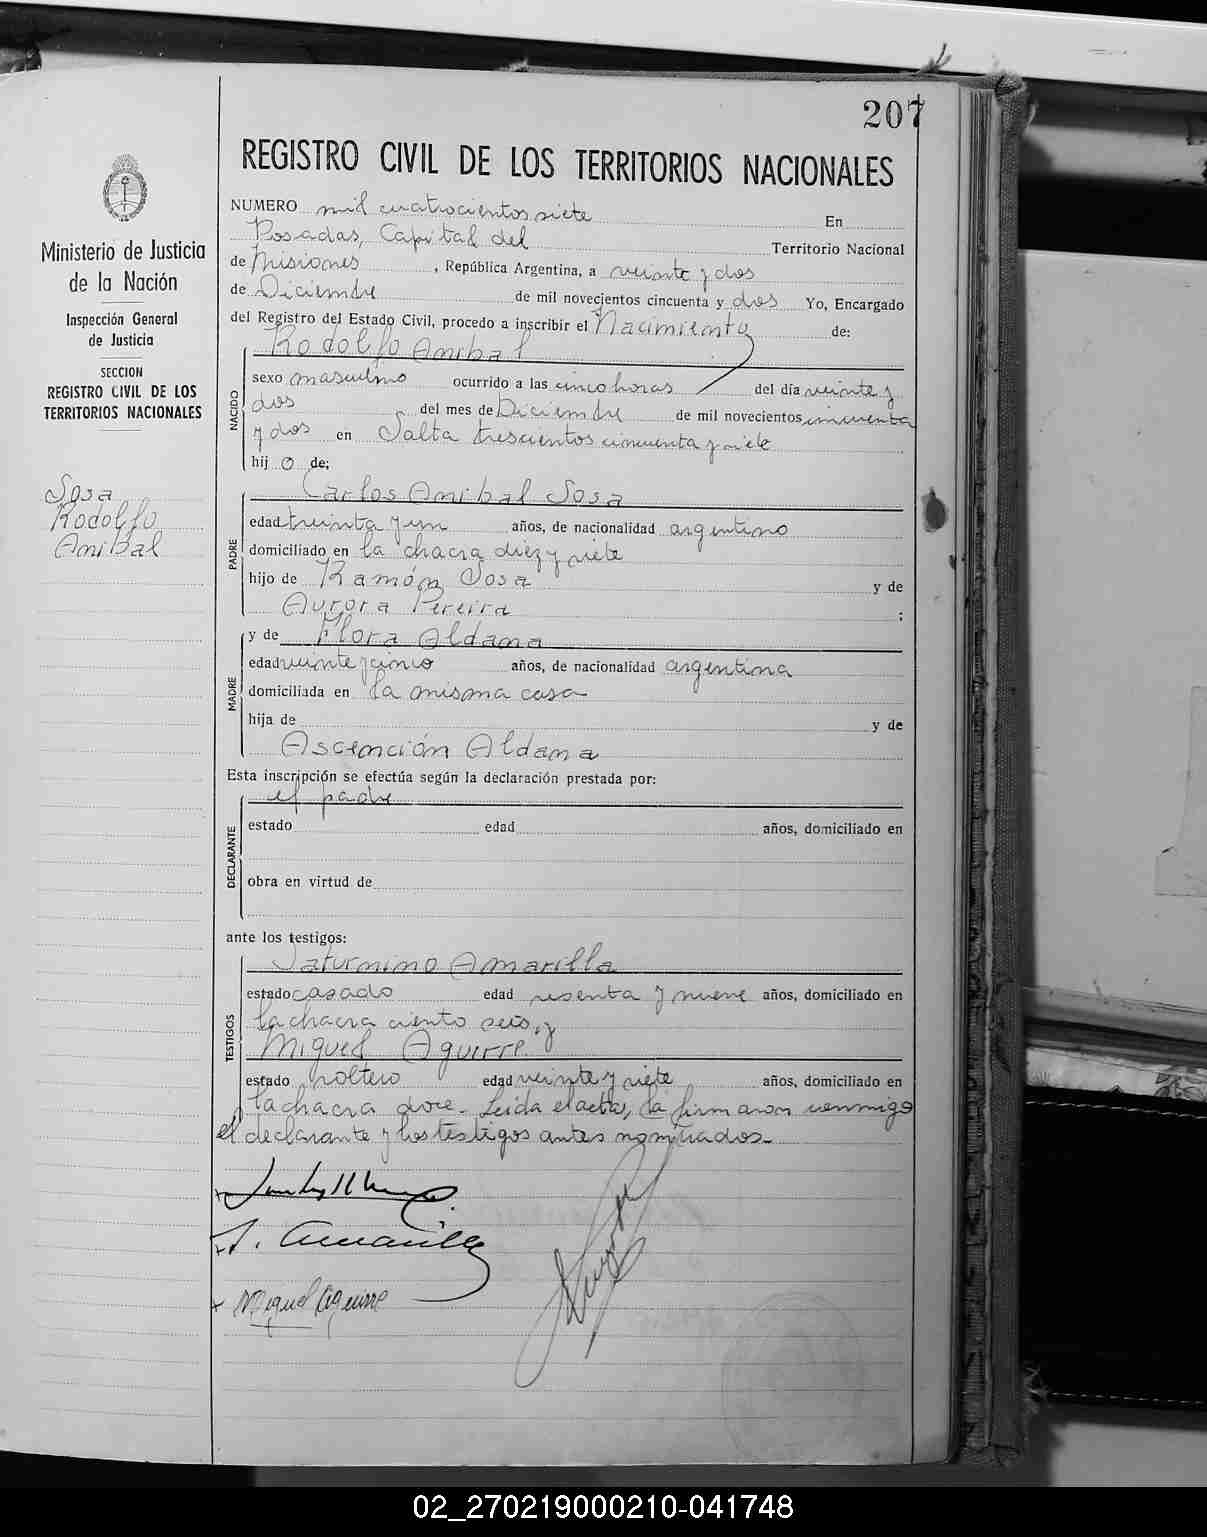 207
REGISTRO CIVIL DE LOS TERRITORIOS NACIONALES
Ministerio de Justicia
de la Nación
Inspección General
de Justicia
SECCION
REGISTRO CIVIL DE LOS
TERRITORIOS NACIONALES
Sosa
Rodolfo
Anibal
NUMERO mil cuatrocientos siete En
Posadas, Capital del Territorio Nacional
de Misiones, República Argentina, a veinte y dos
de Diciembre de mil novecientos cincuenta y dos Yo, Encargado
del Registro del Estado Civil, procedo a inscribir el Nacimiento de:
NACIDO
Rodolfo Anibal
sexo masculino ocurrido a las cinco horas del día veinte y
dos del mes de Diciembre de mil novecientos cincuenta
y dos en Salta trescientos cincuenta y siete
hij o de:
PADRE
Carlos Anibal Sosa
edad treinta y un años, de nacionalidad argentino
domiciliado en la chacra diez y siete
hijo de Ramón Sosa y de
Aurora Pereira ;
MADRE
y de Flora Aldana
edad veinte y cinco años, de nacionalidad argentina
domiciliada en la misma casa
hija de y de
Ascención Aldana
Esta inscripción se efectúa según la declaración prestada por:
DECLARANTE
el padre
estado edad años, domiciliado en
obra en virtud de
ante los testigos:
TESTIGOS
Saturnino Amarilla
estado casado edad sesenta y nueve años, domiciliado en
la chacra ciento seis, y
Miguel Aguirre
estado soltero edad veinte y siete años, domiciliado en
la chacra doce. Leida el acta, la firmaron conmigo
el declarante y los testigos antes nominados.
S. Amarilla
Miguel Aguirre
02_270219000210-041748